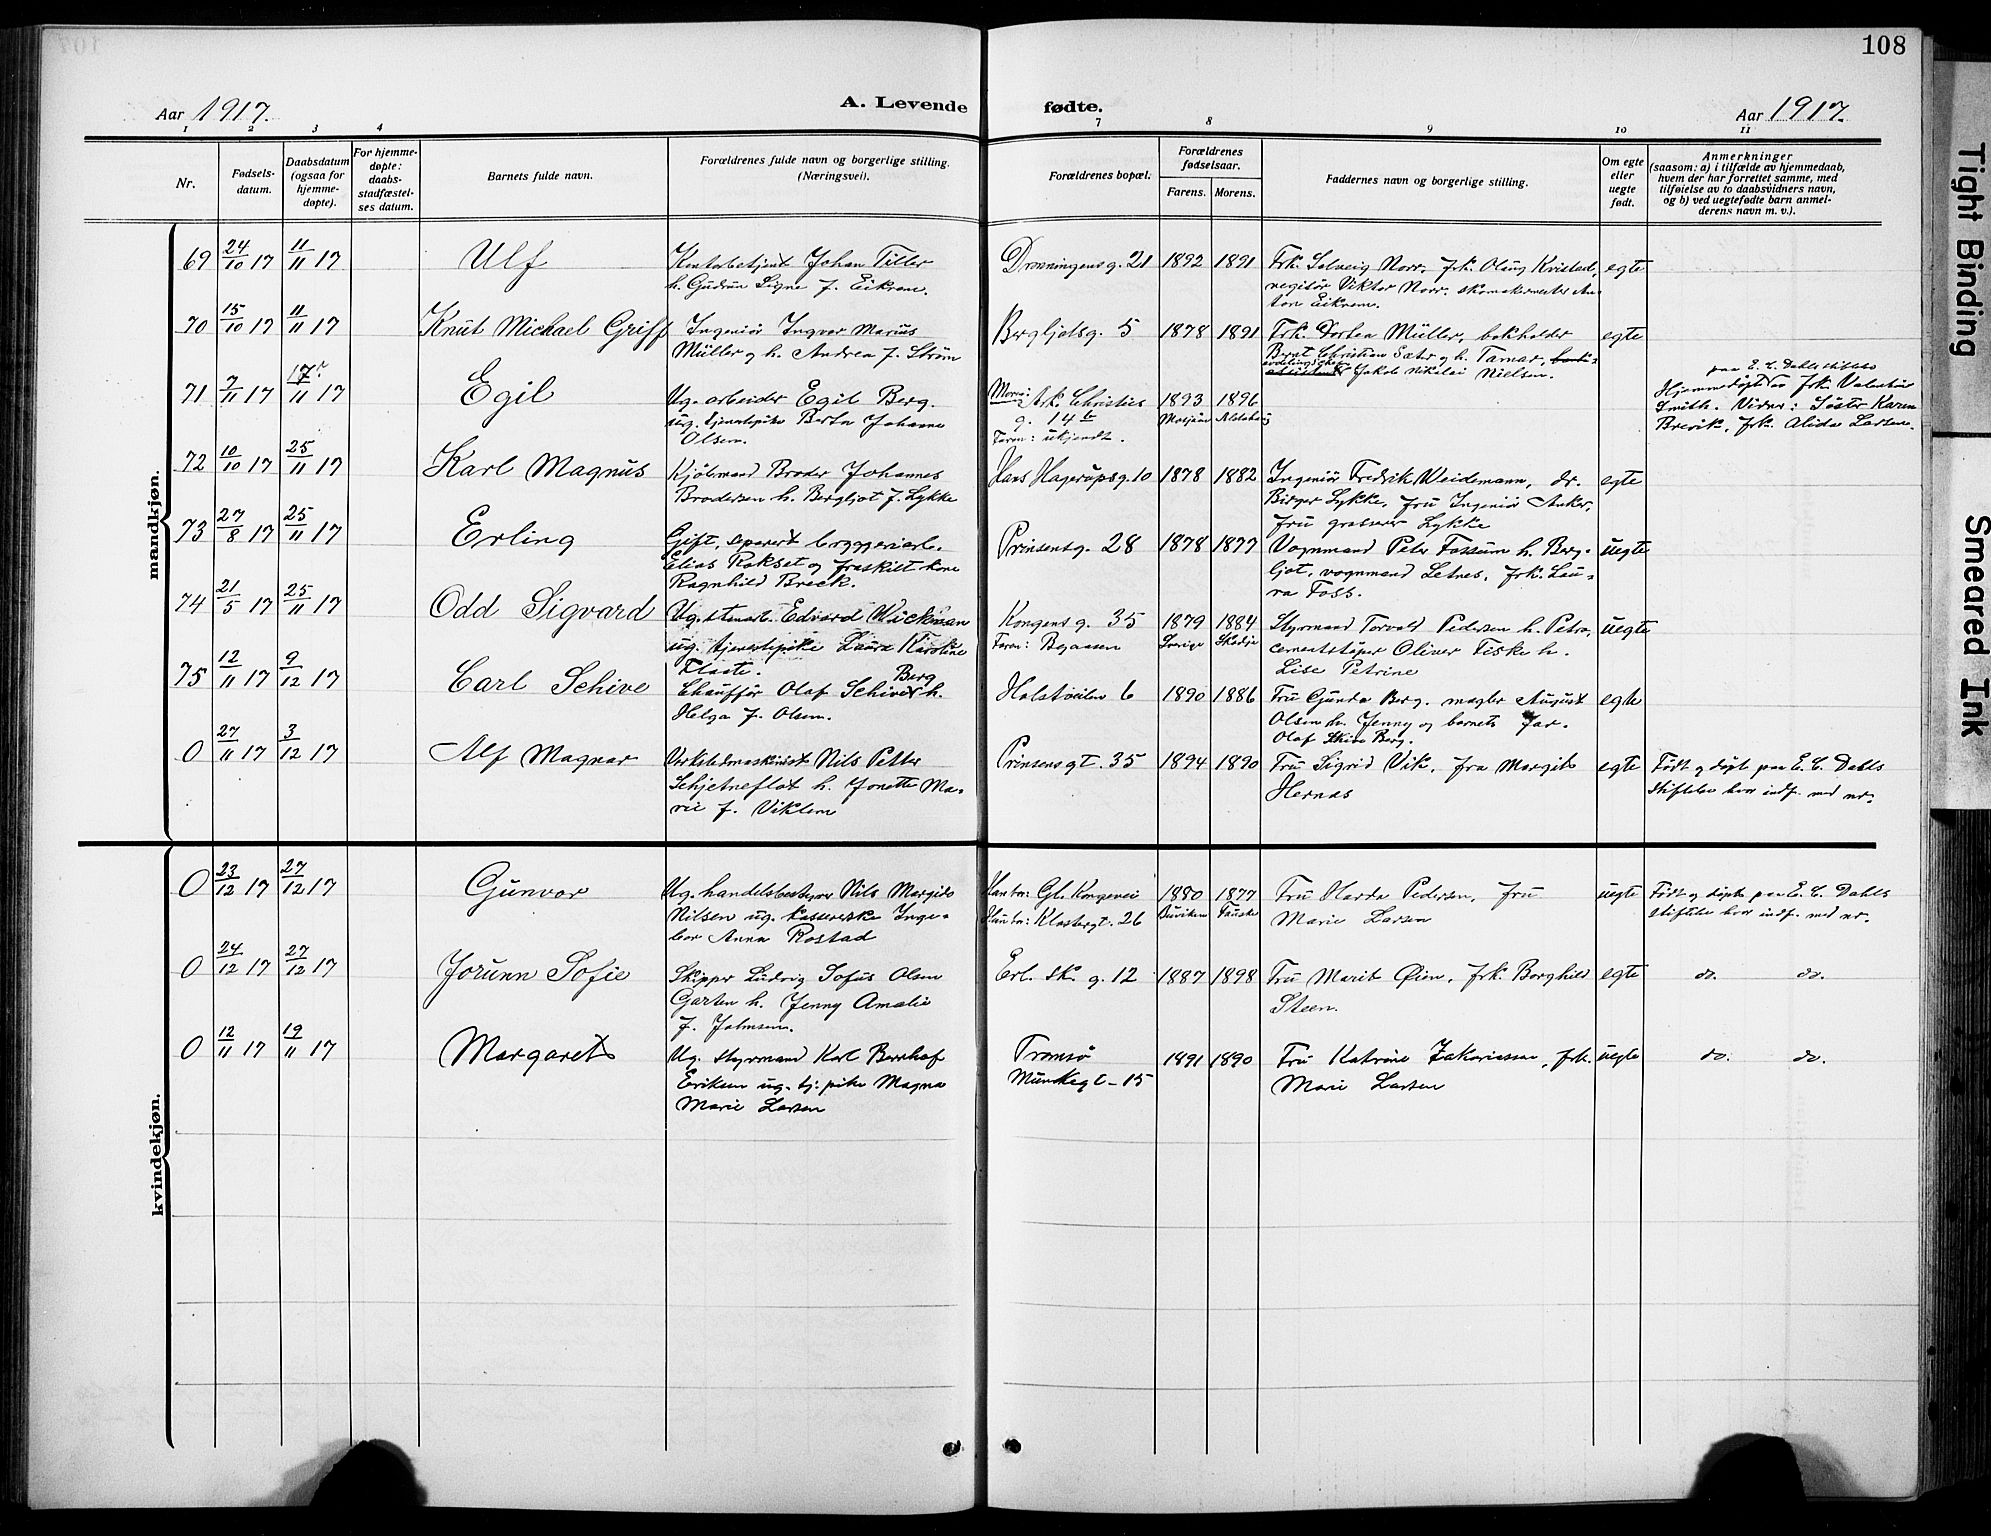 108
Aar 1917.
A. Levende fødte.
Aar 1917.
1 2 3 4 7 8 9 10 11
Nr.
Fødsels-
datum.
Daabsdatum
(ogsaa for
hjemme-
døpte).
For hjemme-
døpte:
daabs-
stadfæstel-
ses datum.
Barnets fulde navn.
Forældrenes fulde navn og borgerlige stilling.
(Næringsvei).
Forældrenes bopæl.
Forældrenes
fødselsaar.
Farens. Morens.
Faddernes navn og borgerlige stilling.
Om egte
eller
uegte
født.
Anmerkninger
(saasom: a) i tilfælde av hjemmedaab,
hvem der har forrettet samme, med
tilføielse av to daabsvidners navn,
og b) ved uegtefødte barn anmel-
derens navn m. v.).
mandkjøn.
69 24/10 17 11/11 17 Ulf
Kontorbetjent Johan Tiller
h. Gudrun Signe f. Eiknem.
Dronningensg. 21 1892 1891
Frk. Solveig Norr, frk. Olung Kvistad,
Viktor Norr. skomakermester An-
ton Eiknem.
egte
70 15/10 17 11/11 17 Knut Michael Griff
Ingeniør Ingvar Marius
Müller og h. Andrea f. Strøm
Bergljotsg. 5 1878 1891
Frk. Dortea Müller, bokholder
Bernt Christian Sæter og h. Tamar,
Jakob Nikolai Nielsen.
egte
71 7/11 17 17/11 17 Egil
Ug. arbeider Egil Berg.
ug. tjenestepike Berta Johanne
Olsen.
Moren: Ark. Christies
g. 14 b
Faren: ukjendt.
1893 1896
Mosjøen Alstahaug
paa E. C. Dahls stiftelse
Hjemmedøpt av frk. Valentine
Smith. Vidner: Søster Karen
Brevik, frk. Alida Larsen.
72 10/10 17 25/11 17 Karl Magnus
Kjøbmand Broder Johannes
Brodersen h. Bergljot f. Lykke
Hans Hagerupsg. 10 1878 1882
Ingeniør Fredrik Weidemann, dr.
Birger Lykke, fru Ingeniør Anker,
fru grosserer Lykke
egte
73 27/8 17 25/11 17 Erling
Gift, separert bryggeriarb.
Elias Rokset og fraskilt kone
Ragnhild Breck.
Prinsensg. 28 1878 1877
Vognmand Peter Fossum h. Berg-
ljot, vognmand Letnes, frk. Lau-
ra Foss.
uegte
74 21/5 17 25/11 17 Odd Sigvard
Ug. stenarb. Edvard Wickman
ug. tjenestepike Laura Karoline
Flaate.
Kongensg. 35
Faren: Byaasen
1879 1884
Sverige Skodje
Styrmand Torvald Pedersen h. Petra,
cementstøper Oliver Fiske h.
Lise Petrine
uegte
75 12/11 17 9/12 17 Carl Schive
Berg
Chauffør Olaf Schive h.
Helga f. Olsen.
Holstveien 6 1890 1886
Fru Gunda Berg. mægler August
Olsen h. Jenny og barnets far.
Olaf Skive Berg.
egte
0 27/11 17 3/12 17 Alf Magnar
Verkstedmaskinist Nils Petter
Schjetneflot h. Jonette Ma-
rie f. Viklem
Prinsensgt. 35 1894 1890
Fru Sigrid Vik, fru Margit
Hernæs
egte
Født og døpt paa E. C. Dahls
stiftelse hvor indf. med nr.
kvindekjøn.
0 23/12 17 27/12 17 Gunvor
Ug. handelsbestyrer Nils Margido
Nilsen ug. kassererske Inge-
bor Anna Rostad
Han bor: Gl. Kongevei
Hun bor: Klostergt. 26
1880 1877
Buviken Fauske
Fru Harda Pedersen, fru
Marie Larsen
uegte
Født og døpt paa E. C. Dahls
stiftelse hvor indf. med nr.
0 24/12 17 27/12 17 Jorunn Sofie
Skipper Ludvig Sofus Olsen
Garten h. Jenny Amalie
f. Johnsen.
Erl. sk. g. 12 1887 1898
Fru Marit Øien, frk. Borghild
Steen.
egte
do. do.
0 12/11 17 19/11 17 Margareth
Ug. styrmand Karl Bernhof
Eriksen ug. tj: pike Magna
Marie Larsen
Tromsø
Munkegt - 15
1891 1890
Fru Katrine Zakariassen, frk.
Marie Larsen
uegte
do. do.
Tight Binding
Smeared Ink